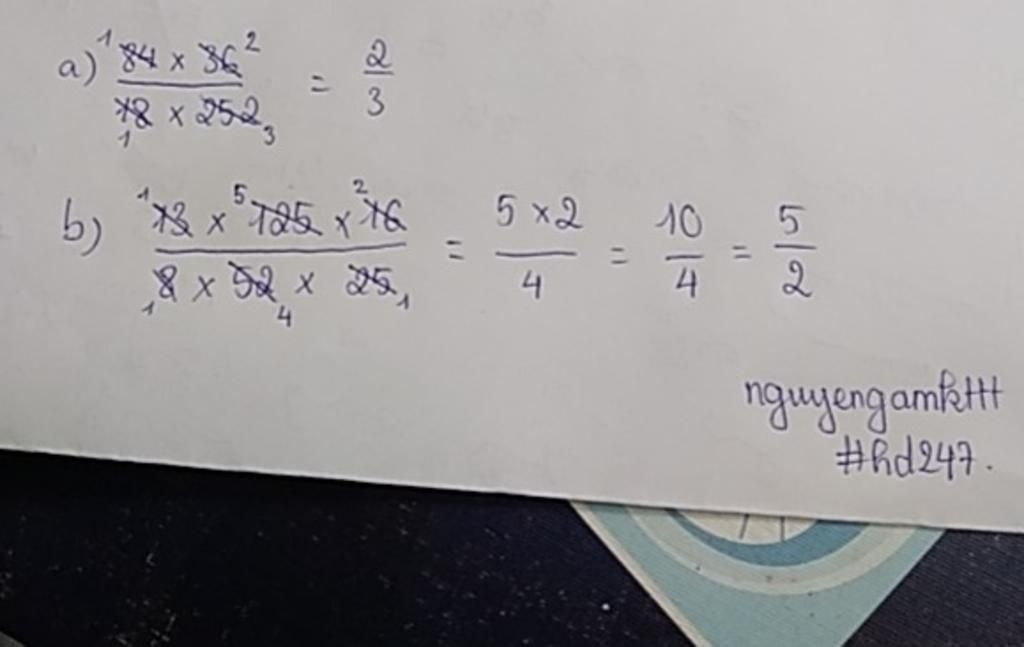 a) ¹84 x 36² / 18₁ x 252₃ = 2/3
b) ¹13 x ⁵125 x ²16 / ₁8 x 52₄ x 25₁ = 5 x 2 / 4 = 10/4 = 5/2
nguyengamkttt
#hd247.